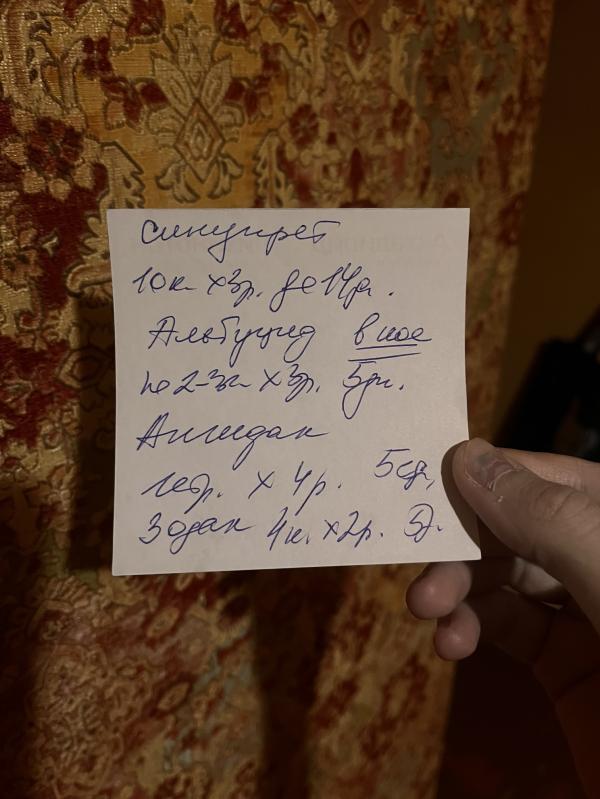 Синупрет
10к. х3р. до 14д.
Альбуцид в нос
по 2-3к х3р. 5дн.
Ангидак
1 х 4р. 5
Зодак 4к. х2р. 5д.